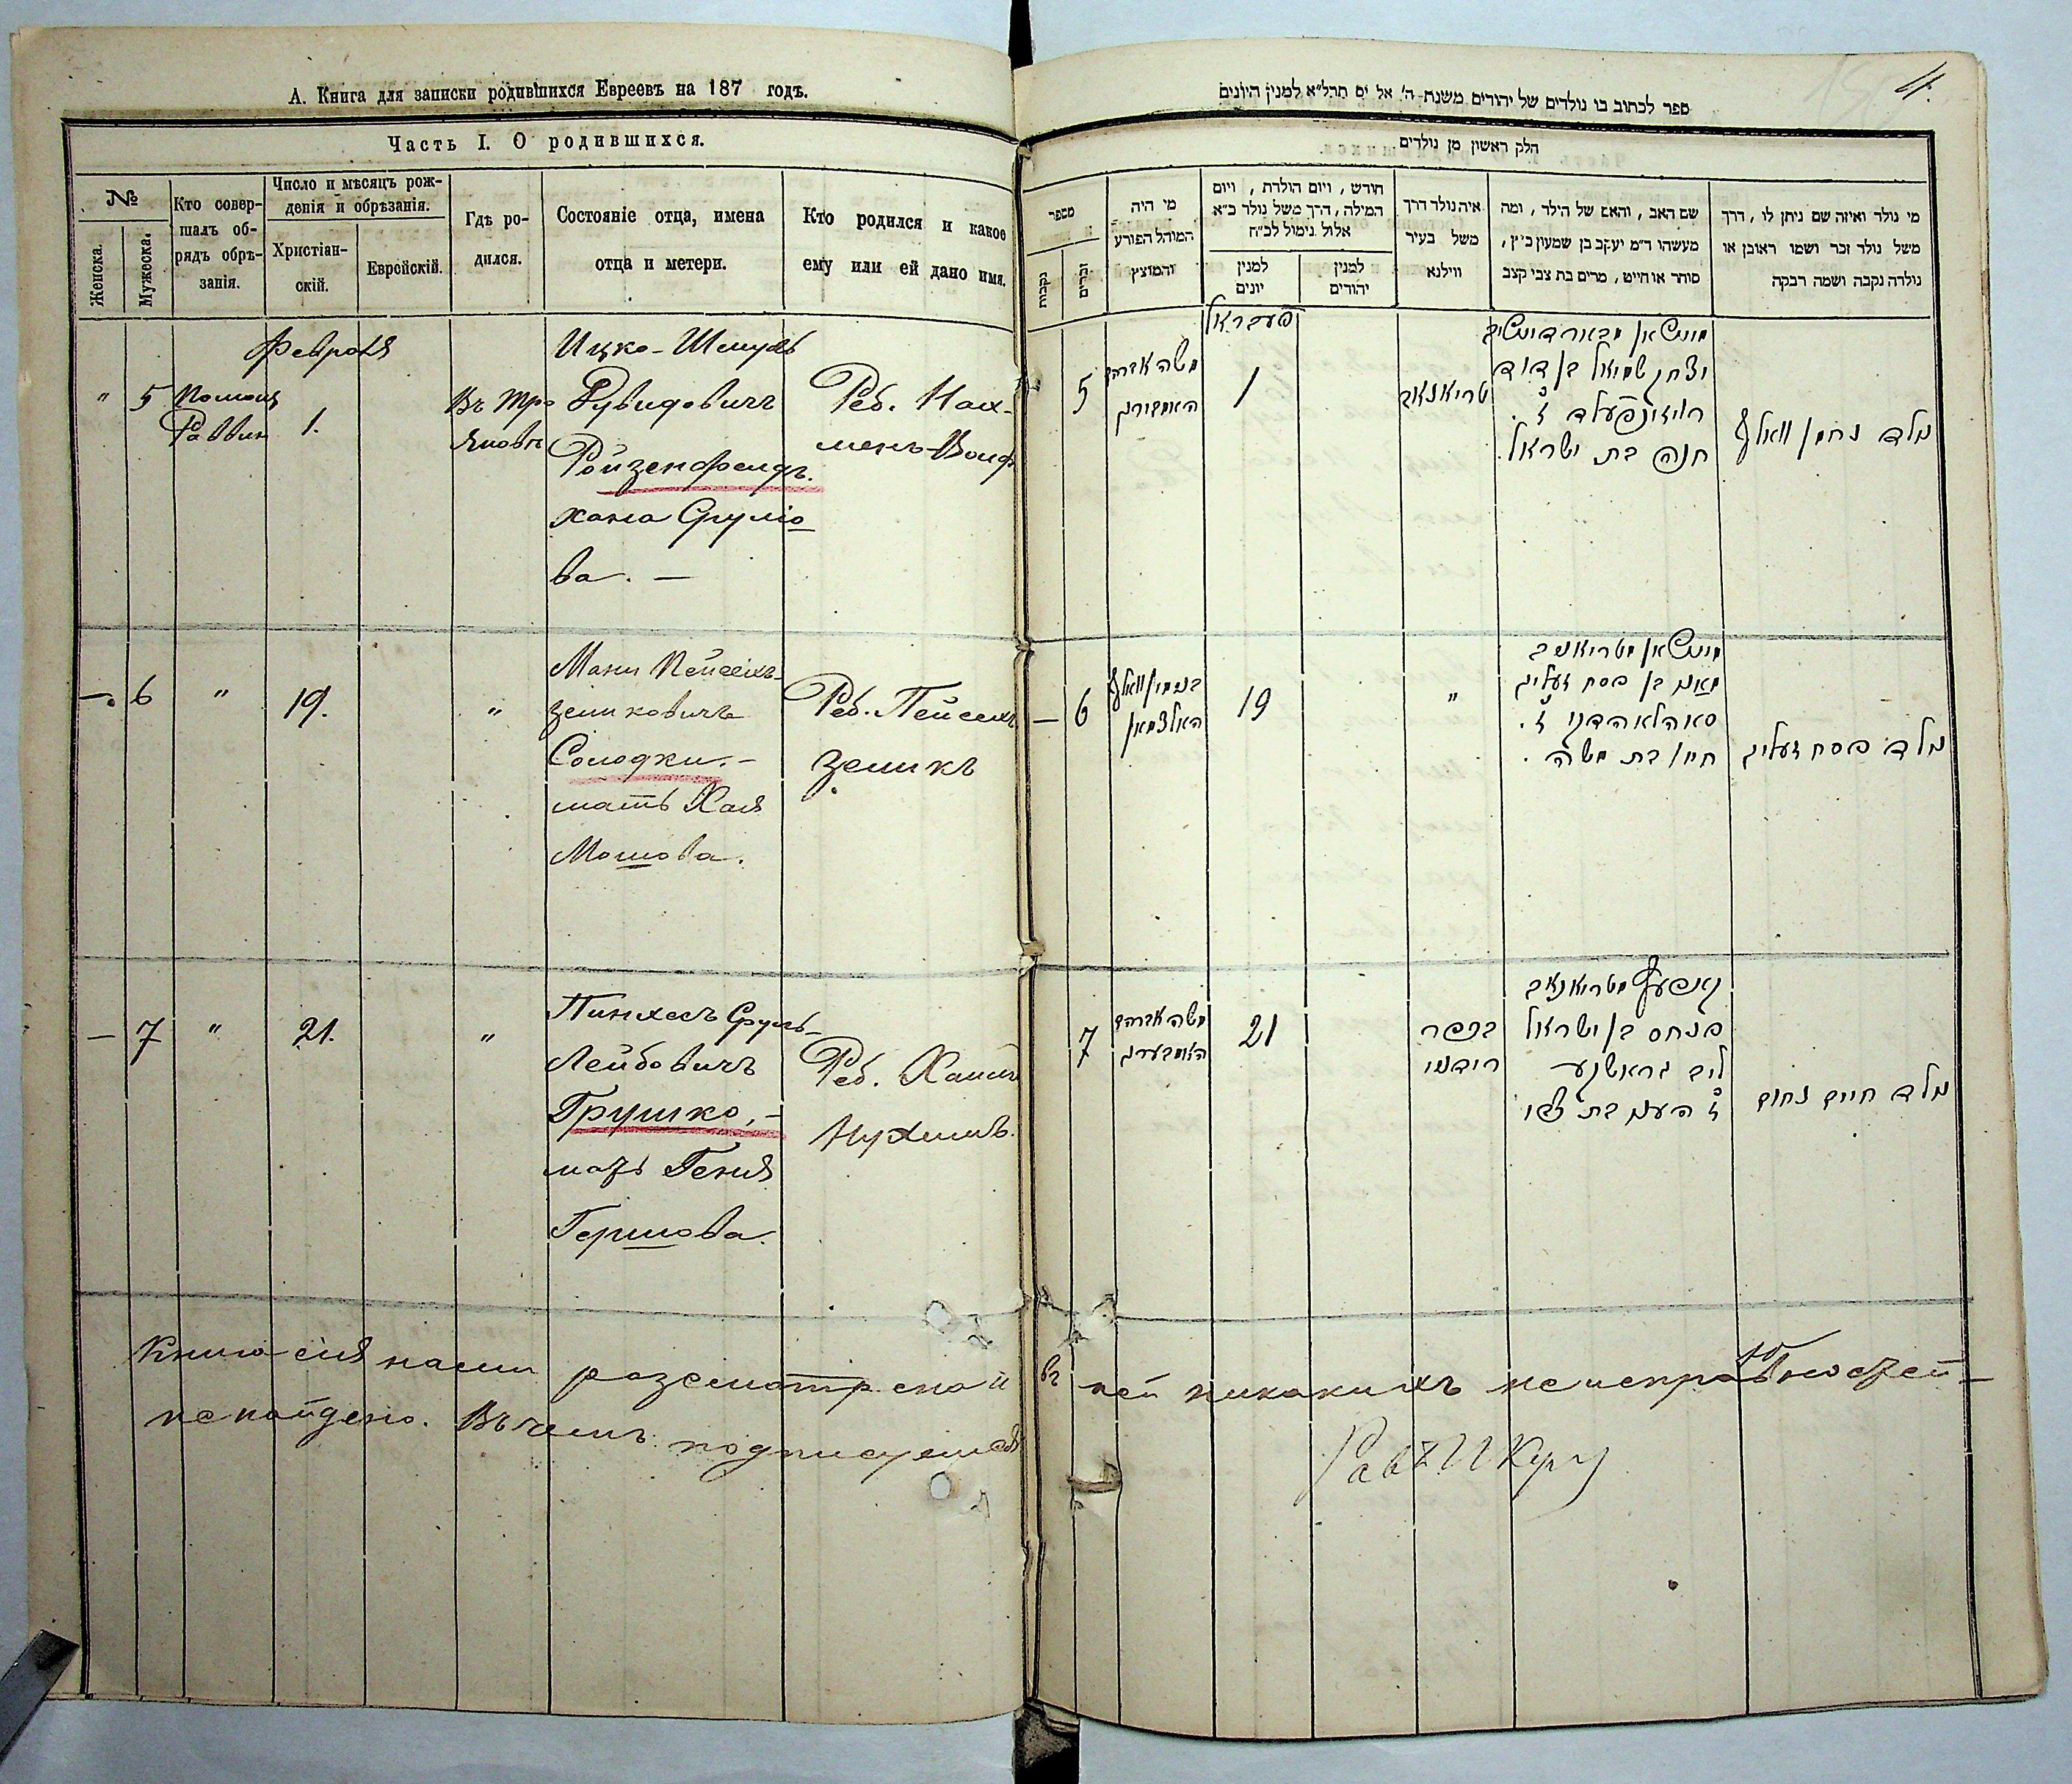 А. Книга для записки родившихся Евреевъ на 187 годъ.
Часть I. О родившихся.
№
Женска.
Мужеска.
Кто совер-
шалъ об-
рядъ обрѣ-
занія.
Число и мѣсяцъ рож-
денія и обрѣзанія.
Христіан-
скій.
Еврейскій.
Гдѣ ро-
дился.
Состояніе отца, имена
отца и метери.
Кто родился и какое
ему или ей дано имя.
Февраля
" 5
Раввин
1.
Въ Тро
яновѣ
Ицко-Шмуль
Дувидовичъ
Ройзенфельдъ.
Хана Срулio
ва. —
Реб. Нах-
менъ-Волф
—. 6 " 19. "
Мани Пейсехъ-
зеликовичъ
Солодки. –
мать Хая
Мошова.
Реб. Пейсехъ
Зеликъ
— 7 " 21. "
Пинхесъ Сруль-
Лейбовичъ
Грушко, –
мать Геня
Гершова.
Реб. Хаимъ
Нухимъ.
4.
ספר לכתוב בו נולדים של יהודים משנת ה' אל ים תרל״א למנין היונים
חלק ראשון מן נולדים
מספר
נקבות
זכרים
מי היה
המוהל הפורע
והמוצץ
חודש, ויום הולדת, ויום
המילה, דרך משל נולד כ״א
אלול נימול לכ״ח
למנין
יונים
למנין
יהודים
איה נולד דרך
משל בעיר
ווילנא
שם האב, והאם של הילד, ומה
מעשהו ד״מ יעקב בן שמעון כ״ץ,
סוחר או חייט, מרים בת צבי קצב
מי נולד ואיזה שם ניתן לו, דרך
משל נולד זכר ושמו ראובן או
נולדה נקבה ושמה רבקה
פעבראל
5
משה אברהם
1
טריאנאב
יצחק שמואל בן דוד
רויזינפעלד ז.
חנה בת ישראל.
ילד נחמן וואלף
— 6
בנימין וואלף
האלצמאן
19
"
מאני בן פסח זעליג
חיי' בת משה.
ילד פסח זעליג
7
משה אברהם
21
בכפר
פנחס בן ישראל
ליב גראשקע
ילד חיים נחום
Книга сія нами разсмотрена и въ ней никакихъ неисправностей
не найдено. Въ чемъ подписуемся